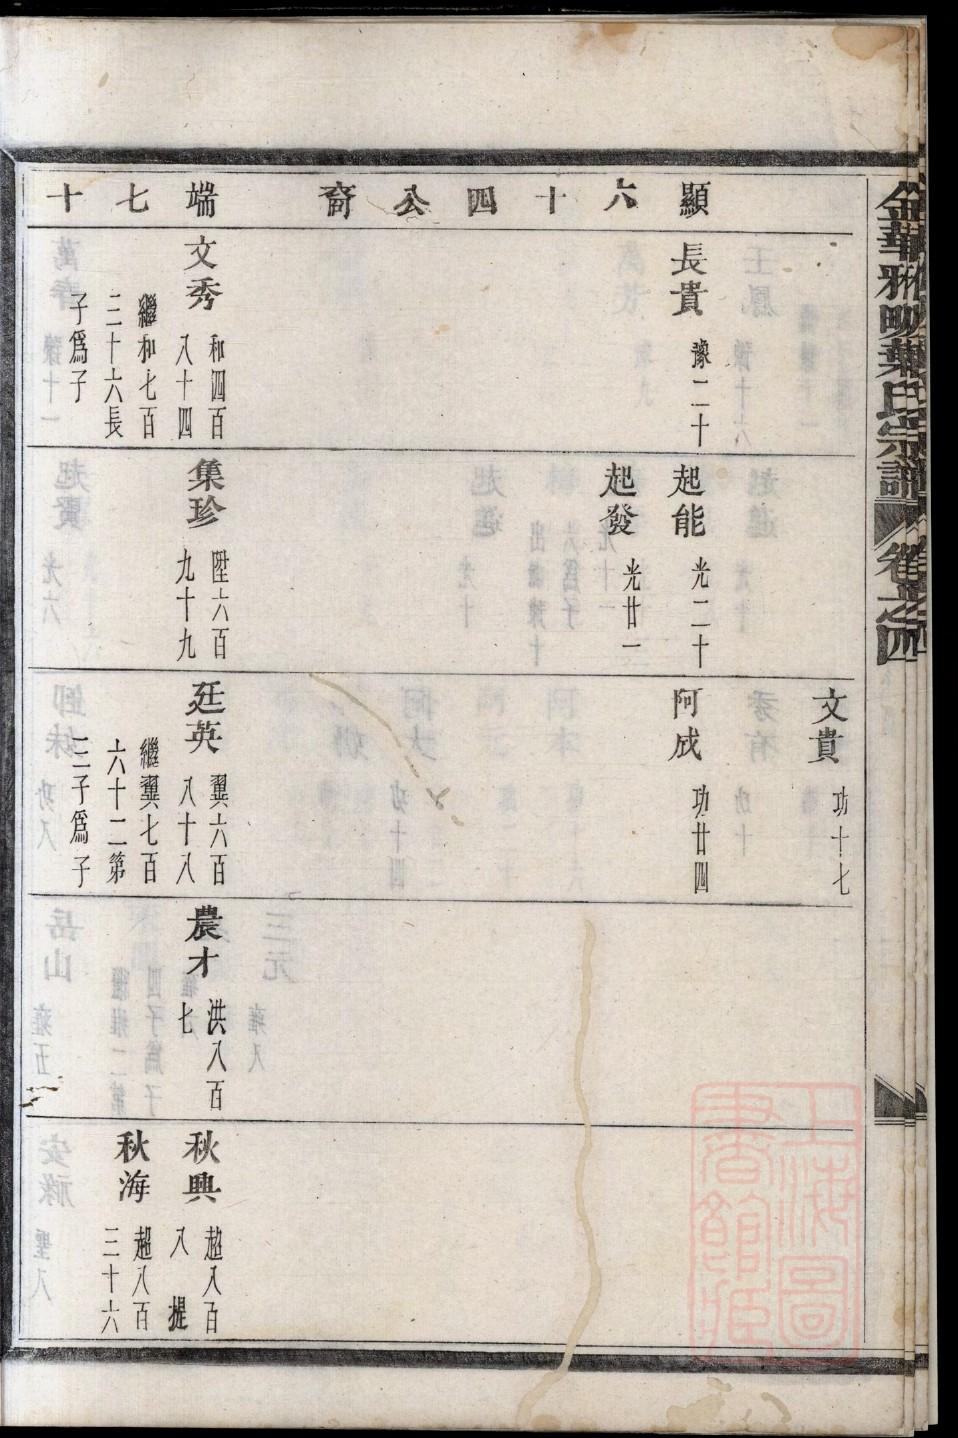 金華雅畈葉氏宗譜 卷之四
顯六十四公裔
端七十
長貴 豫二十
文秀 和四百
八十四
繼和七百
三十六長
子爲子
起能 光二十
起發 光廿一
集珍 陞六百
九十九
文貴 功十七
阿成 功廿四
廷英 翼六百
八十八
繼翼七百
六十二第
二子爲子
農才 洪八百
七
秋興 超八百
八 提
秋海 超八百
三十六
上海圖
書館藏